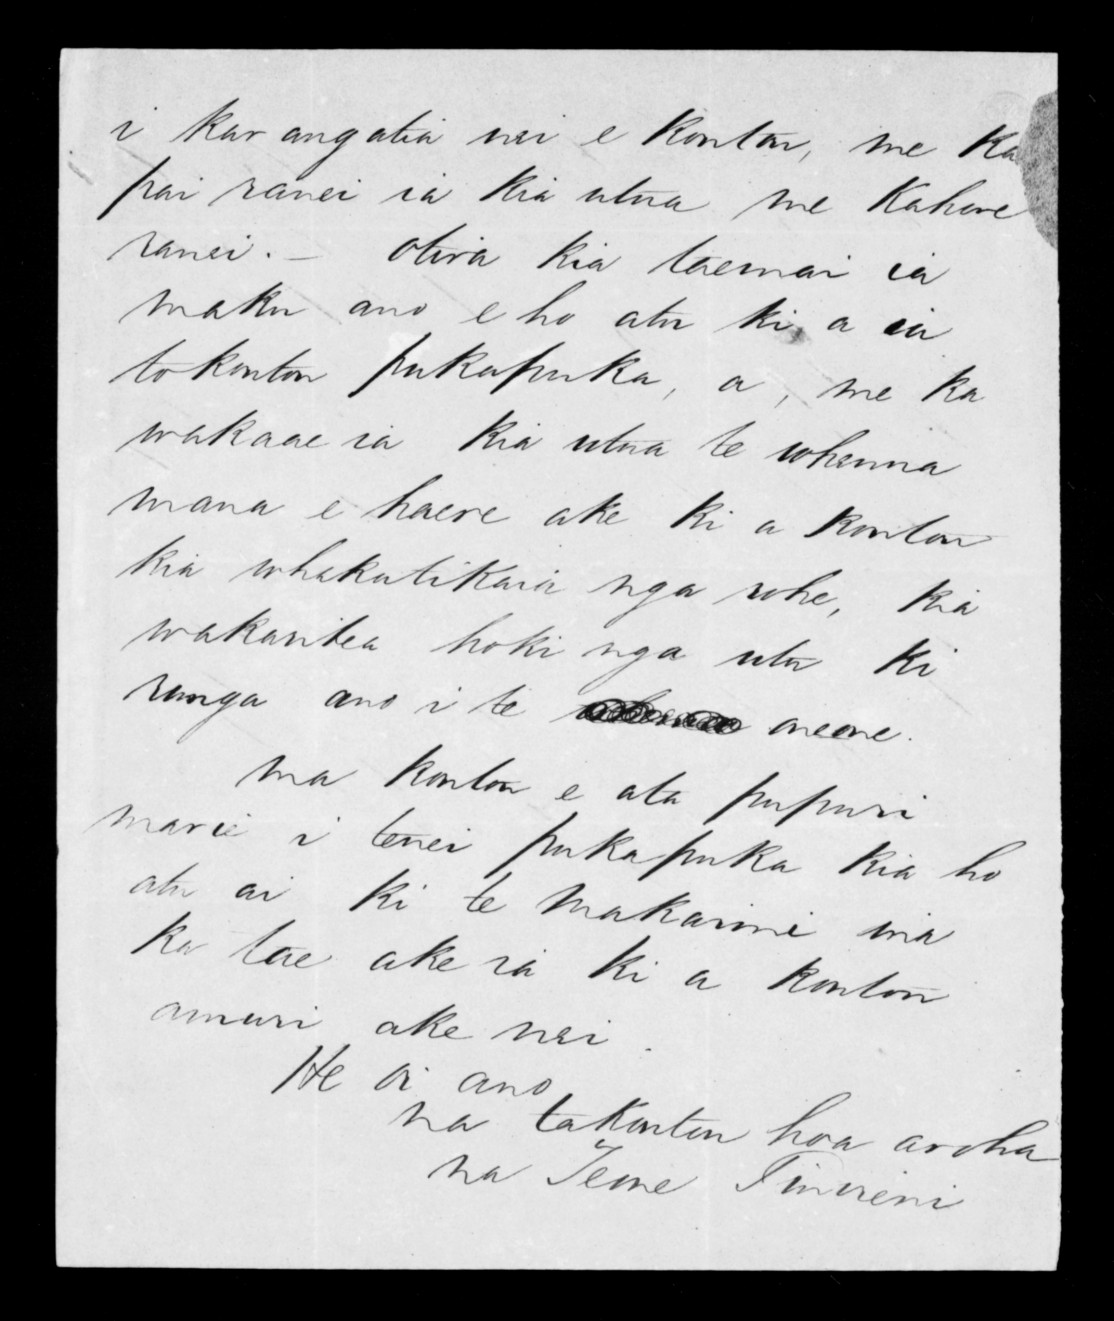 i kar angatia nei e koutou, me ka
pai ranei ia kia utua me kahore
ranei. – otira kia taemai ia
maku ano e ho atu ki a ia
to koutou pukapuka, a, me ka
wakaae ia kia utua te whenua
mana e haere ake ki a koutou
kia whakatikaia nga rohe, kia
wakaritea hoki nga utu ki
runga ano i te oneone.
ma koutou e ata pupuri
marie i tenei pukapuka kia ho
atu ai ki te Makarini ina
ka tae ake ia ki a koutou
amuri ake nei.
He oi ano
na takoutou hoa aroha
na Teone